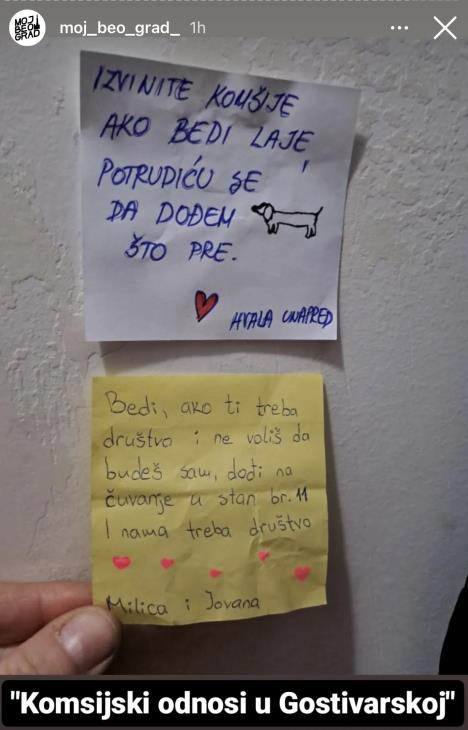 MOJ
BEO
GRAD
moj_beo_grad_ 1h
IZVINITE KOMŠIJE
AKO BEDI LAJE,
POTRUDIĆU SE
DA DOĐEM
ŠTO PRE.
HVALA UNAPRED
Bedi, ako ti treba
društvo i ne voliš da
budeš sam, dođi na
čuvanje u stan br. 11
I nama treba društvo
Milica i Jovana
"Komsijski odnosi u Gostivarskoj"